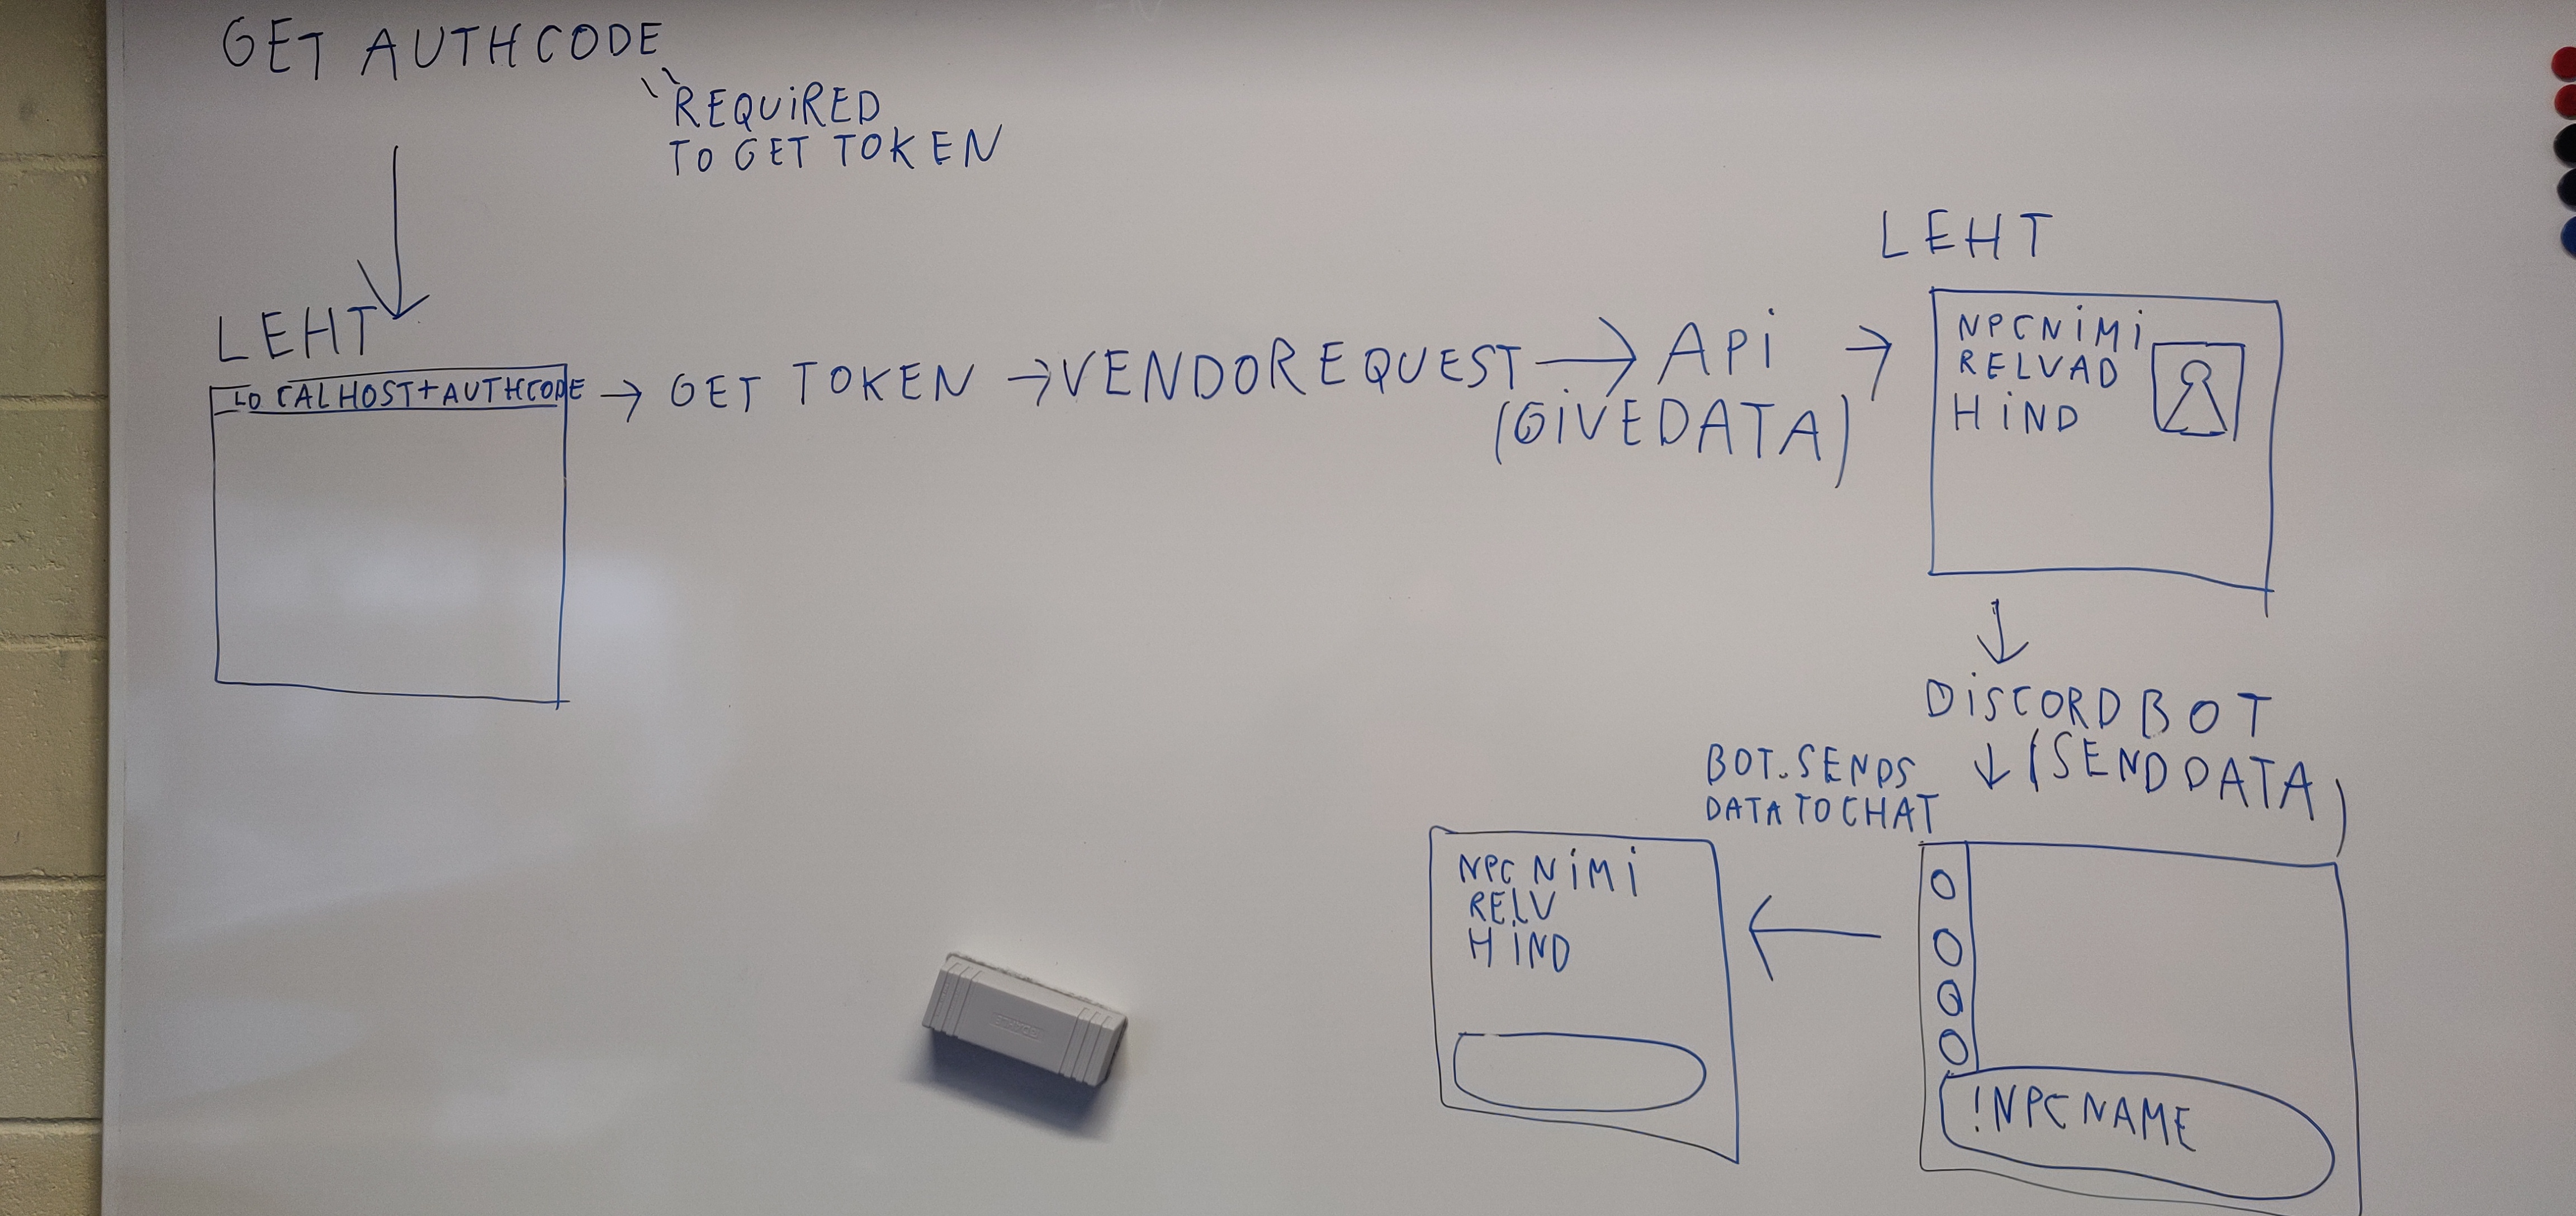 GET AUTHCODE
REQUiRED
TO GET TOKEN
LEHT
LOCALHOST+AUTHCODE
GET TOKEN
VENDOREQUEST
APi
(GiVEDATA)
LEHT
NPCNiMi
RELVAD
HiND
DiSCORDBOT
(SENDDATA)
BOT.SENDS
DATATOCHAT
NPC NiMi
RELV
HiND
!NPCNAME